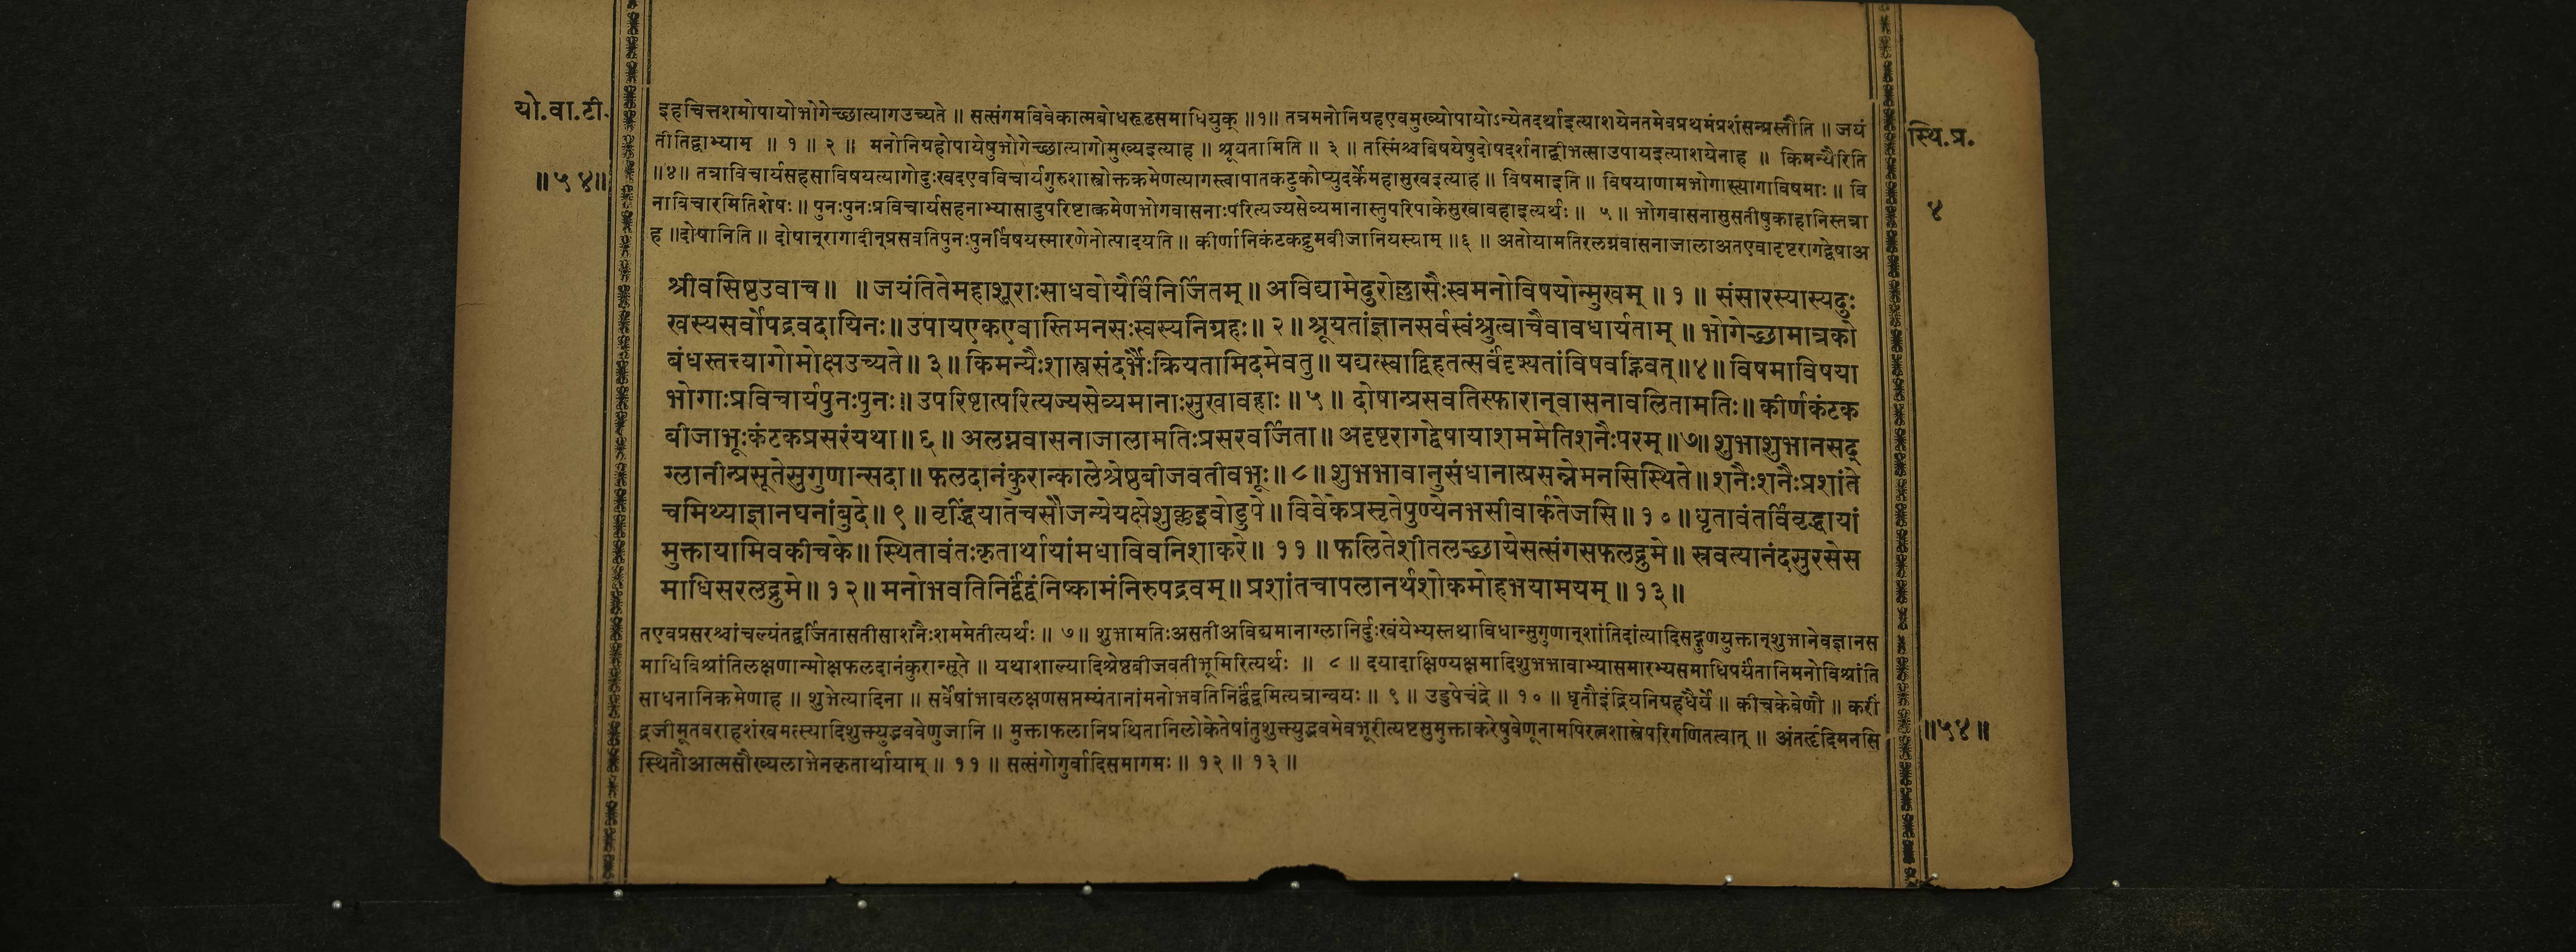 यो.वा.टी.
॥५४॥
इहचित्तशमोपायोभोगेच्छात्यागउच्यते ॥ सत्संगमविवेकात्मबोधरूढसमाधियुक् ॥१॥ तत्रमनोनिग्रहएवमुख्योपायोऽन्येतदर्थाइत्याशयेनतमेवप्रथमंप्रशंसन्प्रस्तौति ॥ जयं
तीतिद्वाभ्याम् ॥ १ ॥ २ ॥ मनोनिग्रहोपायेषुभोगेच्छात्यागोमुख्यइत्याह ॥ श्रूयतामिति ॥ ३ ॥ तस्मिंश्चविषयेषुदोषदर्शनाद्बीभत्साउपायइत्याशयेनाह ॥ किमन्यैरिति
॥४॥ तत्राविचार्यसहसाविषयत्यागोदुःखदएवविचार्यगुरुशास्त्रोक्तक्रमेणत्यागस्त्वापातकटुकोप्युदर्केमहासुखइत्याह ॥ विषमाइति ॥ विषयाणामभोगास्त्यागाविषमाः ॥ वि
नाविचारमितिशेषः ॥ पुनःपुनःप्रविचार्यसहनाभ्यासादुपरिष्टात्क्रमेणभोगवासनाःपरित्यज्यसेव्यमानास्तुपरिपाकेसुखावहाइत्यर्थः ॥ ५ ॥ भोगवासनासुसतीषुकाहानिस्तत्रा
ह ॥दोषानिति ॥ दोषान्रागादीन्प्रसवतिपुनःपुनर्विषयस्मारणेनोत्पादयति ॥ कीर्णानिकंटकद्रुमबीजानियस्याम् ॥६ ॥ अतोयामतिरलग्नवासनाजालाअतएवादृष्टरागद्वेषाअ
श्रीवसिष्ठउवाच॥ ॥जयंतितेमहाशूराःसाधवोयैर्विनिर्जितम्॥अविद्यामेदुरोल्लासैःस्वमनोविषयोन्मुखम्॥१॥ संसारस्यास्यदुः
खस्यसर्वोपद्रवदायिनः॥उपायएकएवास्तिमनसःस्वस्यनिग्रहः॥२॥श्रूयतांज्ञानसर्वस्वंश्रुत्वाचैवावधार्यताम्॥भोगेच्छामात्रको
बंधस्तत्त्यागोमोक्षउच्यते॥३॥किमन्यैःशास्त्रसंदर्भैःक्रियतामिदमेवतु॥यद्यत्स्वाद्विहतत्सर्वंदृश्यतांविषवह्निवत्॥४॥विषमाविषया
भोगाःप्रविचार्यपुनःपुनः॥उपरिष्टात्परित्यज्यसेव्यमानाःसुखावहाः॥५॥ दोषान्प्रसवतिस्फारान्वासनावलितामतिः॥कीर्णकंटक
बीजाभूःकंटकप्रसरंयथा॥६॥ अलग्नवासनाजालामतिःप्रसरवर्जिता॥अदृष्टरागद्वेषायाशममेतिशनैःपरम्॥७॥शुभाशुभानसद्
ग्लानीन्प्रसूतेसुगुणान्सदा॥फलदानंकुरान्कालेश्रेष्ठबीजवतीवभूः॥८॥शुभभावानुसंधानात्प्रसन्नेमनसिस्थिते॥शनैःशनैःप्रशांते
चमिथ्याज्ञानघनांबुदे॥९॥वृद्धिंयातेचसौजन्येयक्षेशुक्लइवोडुपे॥विवेकेप्रसृतेपुण्येनभसीवार्कतेजसि॥१०॥धृतावंतर्विवृद्धायां
मुक्तायामिवकीचके॥स्थितावंतःकृतार्थायांमधाविवनिशाकरे॥११॥फलितेशीतलच्छायेसत्संगसफलद्रुमे॥स्रवत्यानंदसुरसेस
माधिसरलद्रुमे॥१२॥मनोभवतिनिर्द्वंद्वंनिष्कामंनिरुपद्रवम्॥प्रशांतचापलानर्थशोकमोहभयामयम्॥१३॥
तएवप्रसरश्चांचल्यंतद्वर्जितासतीसाशनैःशममेतीत्यर्थः ॥ ७॥ शुभामतिःअसतीअविद्यमानाग्लानिर्दुःखंयेभ्यस्तथाविधान्सुगुणान्शांतिदांत्यादिसद्गुणयुक्तान्शुभानेवज्ञानस
माधिविश्रांतिलक्षणान्मोक्षफलदानंकुरान्सूते ॥ यथाशाल्यादिश्रेष्ठबीजवतीभूमिरित्यर्थः ॥ ८ ॥ दयादाक्षिण्यक्षमादिशुभभावाभ्यासमारभ्यसमाधिपर्यंतानिमनोविश्रांति
साधनानिक्रमेणाह ॥ शुभेत्यादिना ॥ सर्वेषांभावलक्षणसप्तम्यंतानांमनोभवतिनिर्द्वंद्वमित्यत्रान्वयः ॥ ९ ॥ उडुपेचंद्रे ॥ १० ॥ धृतौइंद्रियनिग्रहधैर्ये ॥ कीचकेवेणौ ॥ करीं
द्रजीमूतवराहशंखमत्स्यादिशुक्त्युद्भववेणुजानि ॥ मुक्ताफलानिप्रथितानिलोकेतेषांतुशुक्त्युद्भवमेवभूरीत्यष्टसुमुक्ताकरेषुवेणूनामपिरत्नशास्त्रेपरिगणितत्वात् ॥ अंतर्हृदिमनसि
स्थितौआत्मसौख्यलाभेनकृतार्थायाम् ॥ ११ ॥ सत्संगोगुर्वादिसमागमः ॥ १२ ॥ १३ ॥
स्थि.प्र.
४
॥५४॥